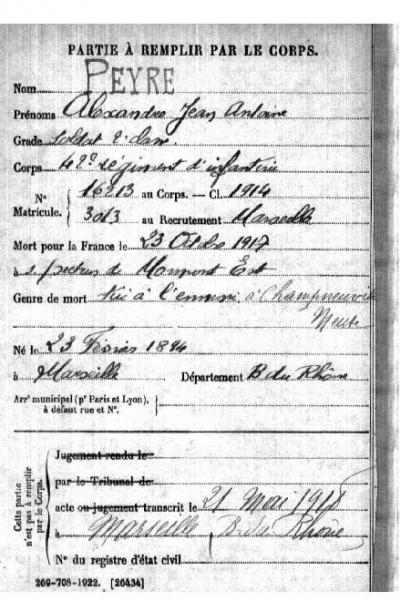 PARTIE À REMPLIR PAR LE CORPS.
Nom PEYRE
Prénoms Alexandre Jean Antoine
Grade soldat 2e classe
Corps 42e régiment d'infanterie
N° Matricule. 16213 au Corps. — Cl. 1914
3013 au Recrutement Marseille
Mort pour la France le 23 Octobre 1917
à s. secteur de Mormont Est
Genre de mort tué à l'ennemi à Champneuville
Meuse
Né le 23 Février 1894
à Marseille Département B du Rhône
Arrt municipal (pr Paris et Lyon),
à défaut rue et N°.
Cette partie n'est pas à remplir par le Corps.
Jugement rendu le
par le Tribunal de
acte ou jugement transcrit le 21 Mai 1918
à Marseille (B. du Rhône)
N° du registre d'état civil
269-708-1922. [26434]